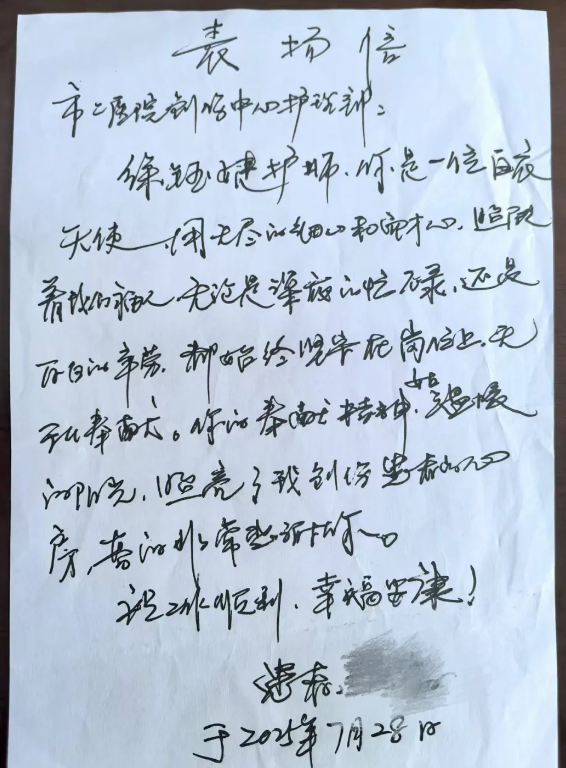 表扬信
市二医院创伤中心护理部:
徐玉婕护师,你是一位白衣
天使,用无尽的细心和耐心,照顾
着我们病人 无论是深夜的忙碌,还是
百日的辛劳,都始终坚守在岗位上,无
私奉献。你的奉献精神,如温暖
的阳光,照亮了我创伤患者的心
房,真的非常感谢你。
祝工作顺利,幸福安康!
患者:
于2025年7月28日